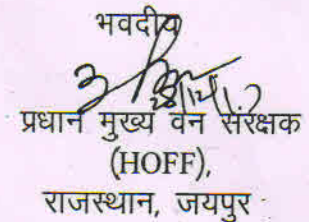 भवदीय
प्रधान मुख्य वन संरक्षक
(HOFF),
राजस्थान, जयपुर